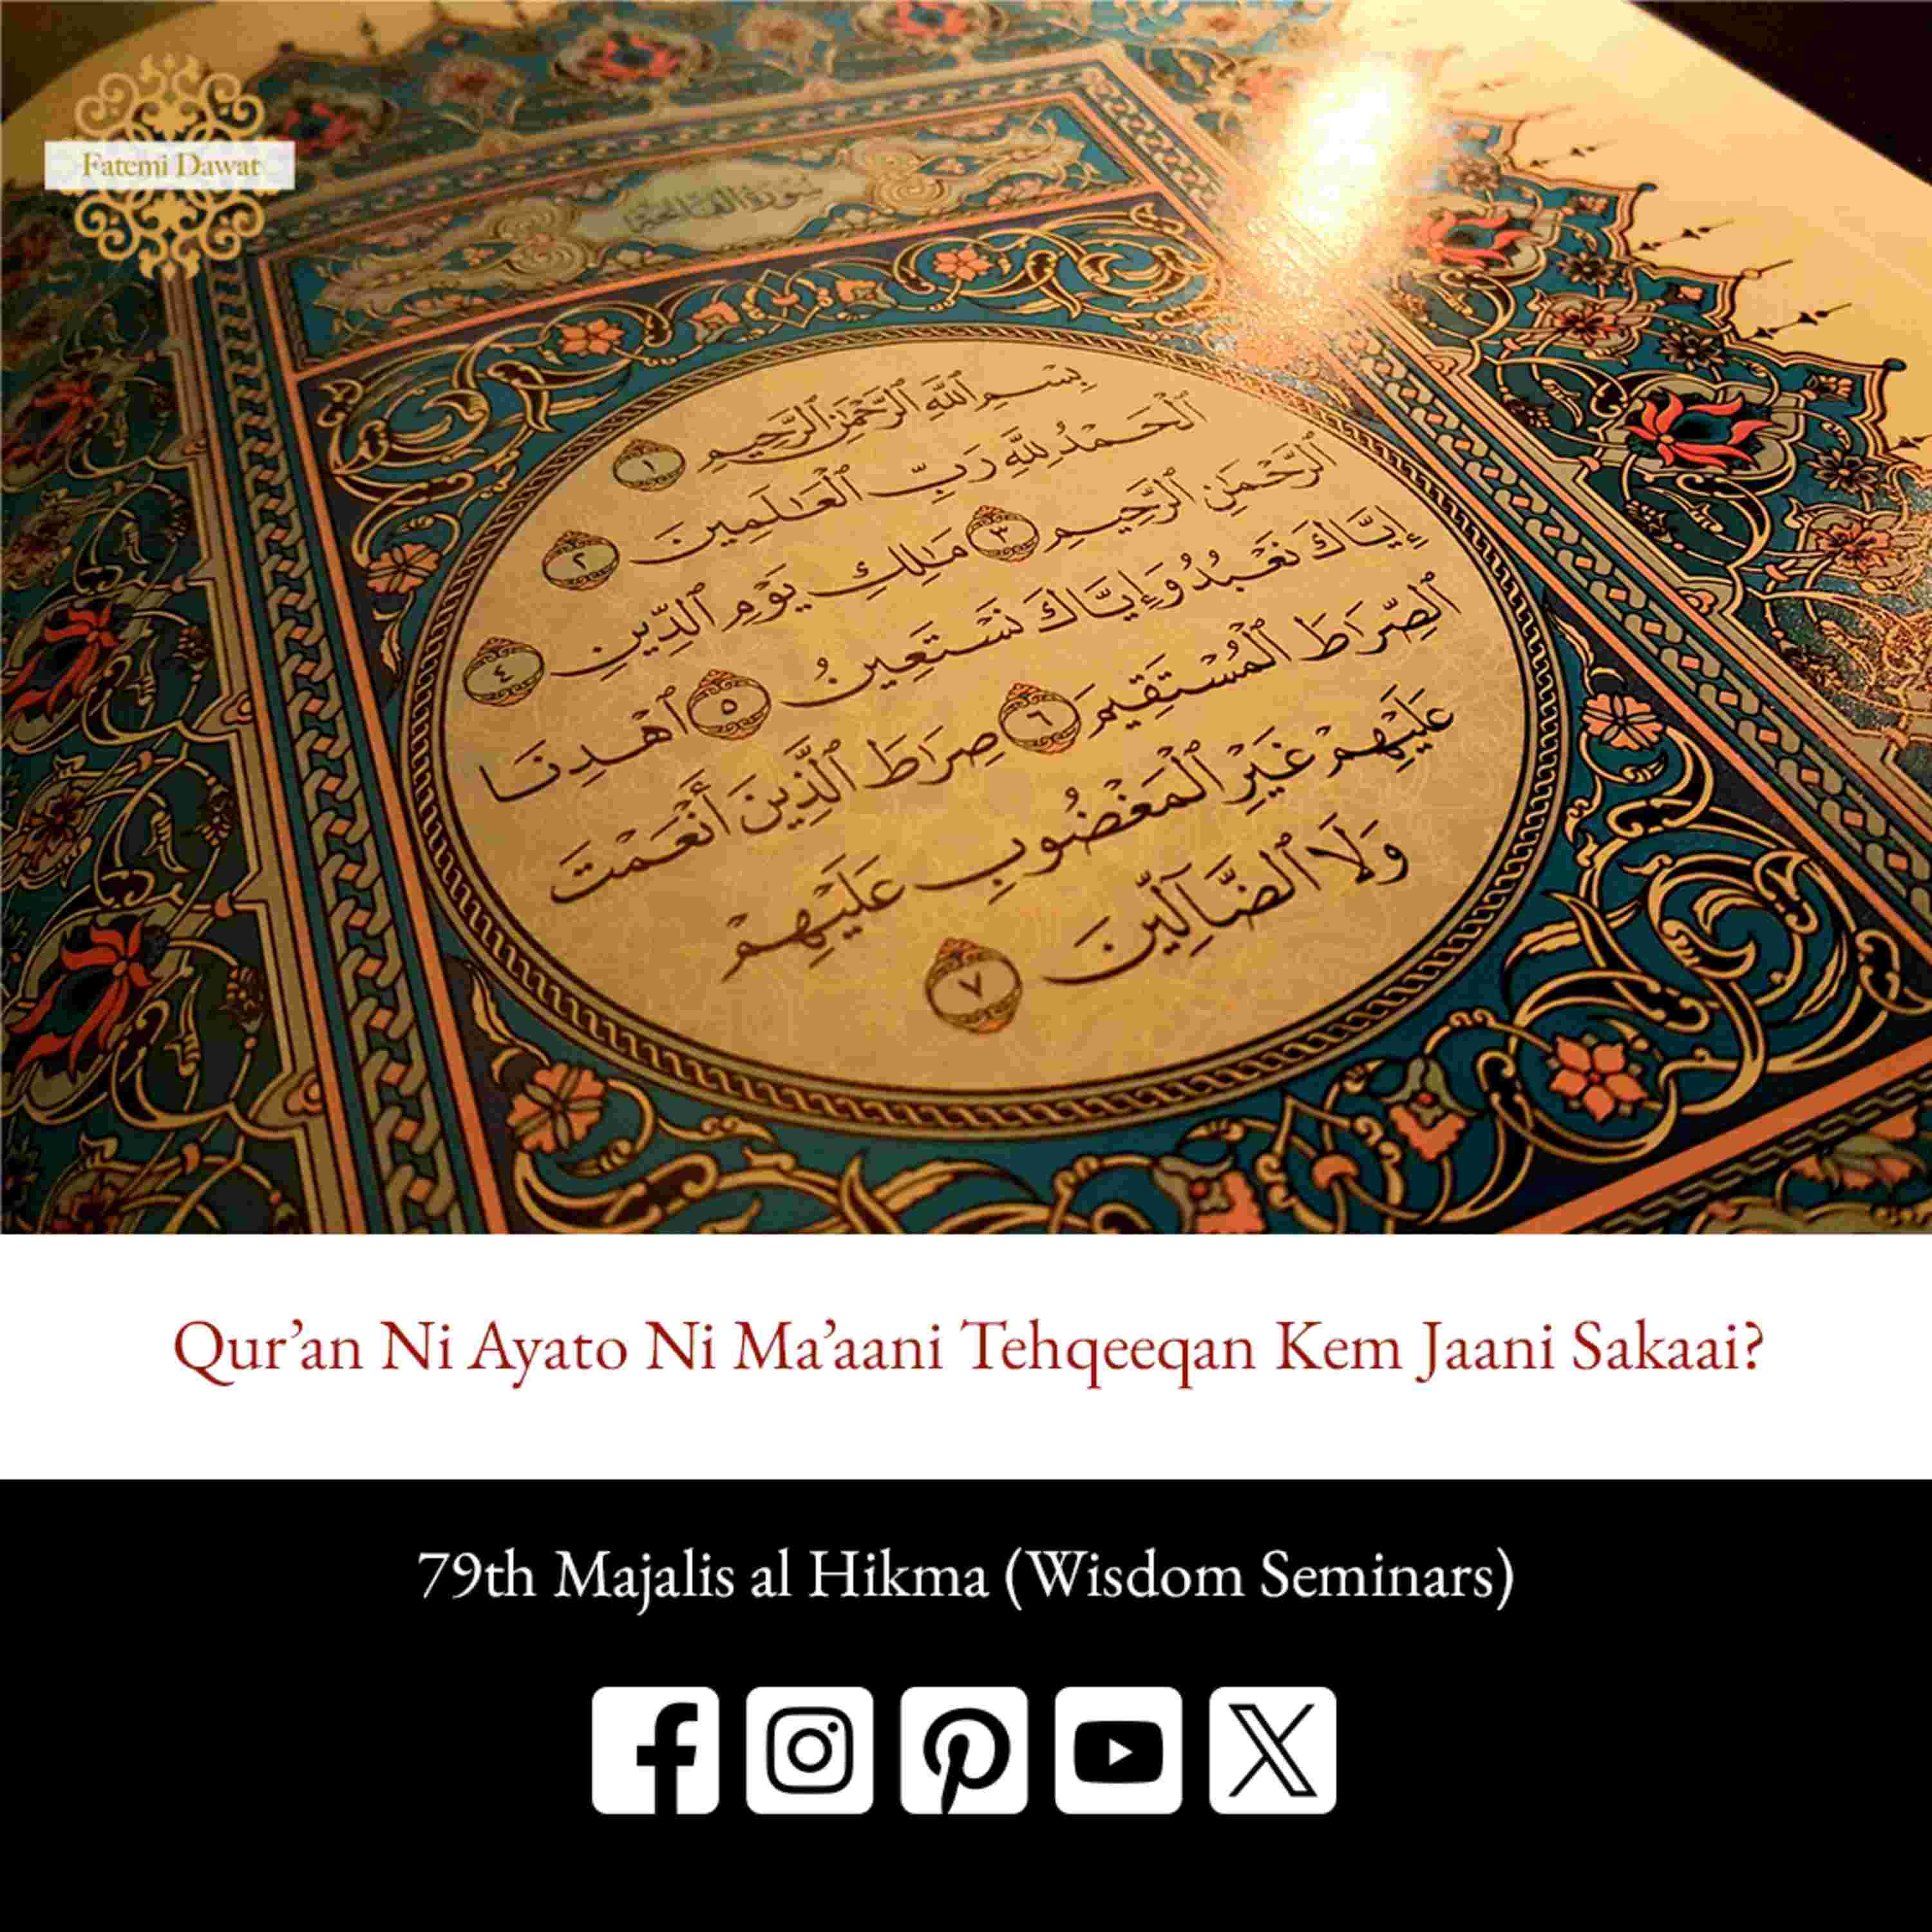 Fatemi Dawat
سورة الفاتحة
بِسْمِ ٱللَّهِ ٱلرَّحْمَٰنِ ٱلرَّحِيمِ ١
ٱلْحَمْدُ لِلَّهِ رَبِّ ٱلْعَٰلَمِينَ ٢
ٱلرَّحْمَٰنِ ٱلرَّحِيمِ ٣ مَٰلِكِ يَوْمِ ٱلدِّينِ ٤
إِيَّاكَ نَعْبُدُ وَإِيَّاكَ نَسْتَعِينُ ٥ ٱهْدِنَا
ٱلصِّرَاطَ ٱلْمُسْتَقِيمَ ٦ صِرَاطَ ٱلَّذِينَ أَنْعَمْتَ
عَلَيْهِمْ غَيْرِ ٱلْمَغْضُوبِ عَلَيْهِمْ
وَلَا ٱلضَّآلِّينَ ٧
Qur’an Ni Ayato Ni Ma’aani Tehqeeqan Kem Jaani Sakaai?
79th Majalis al Hikma (Wisdom Seminars)